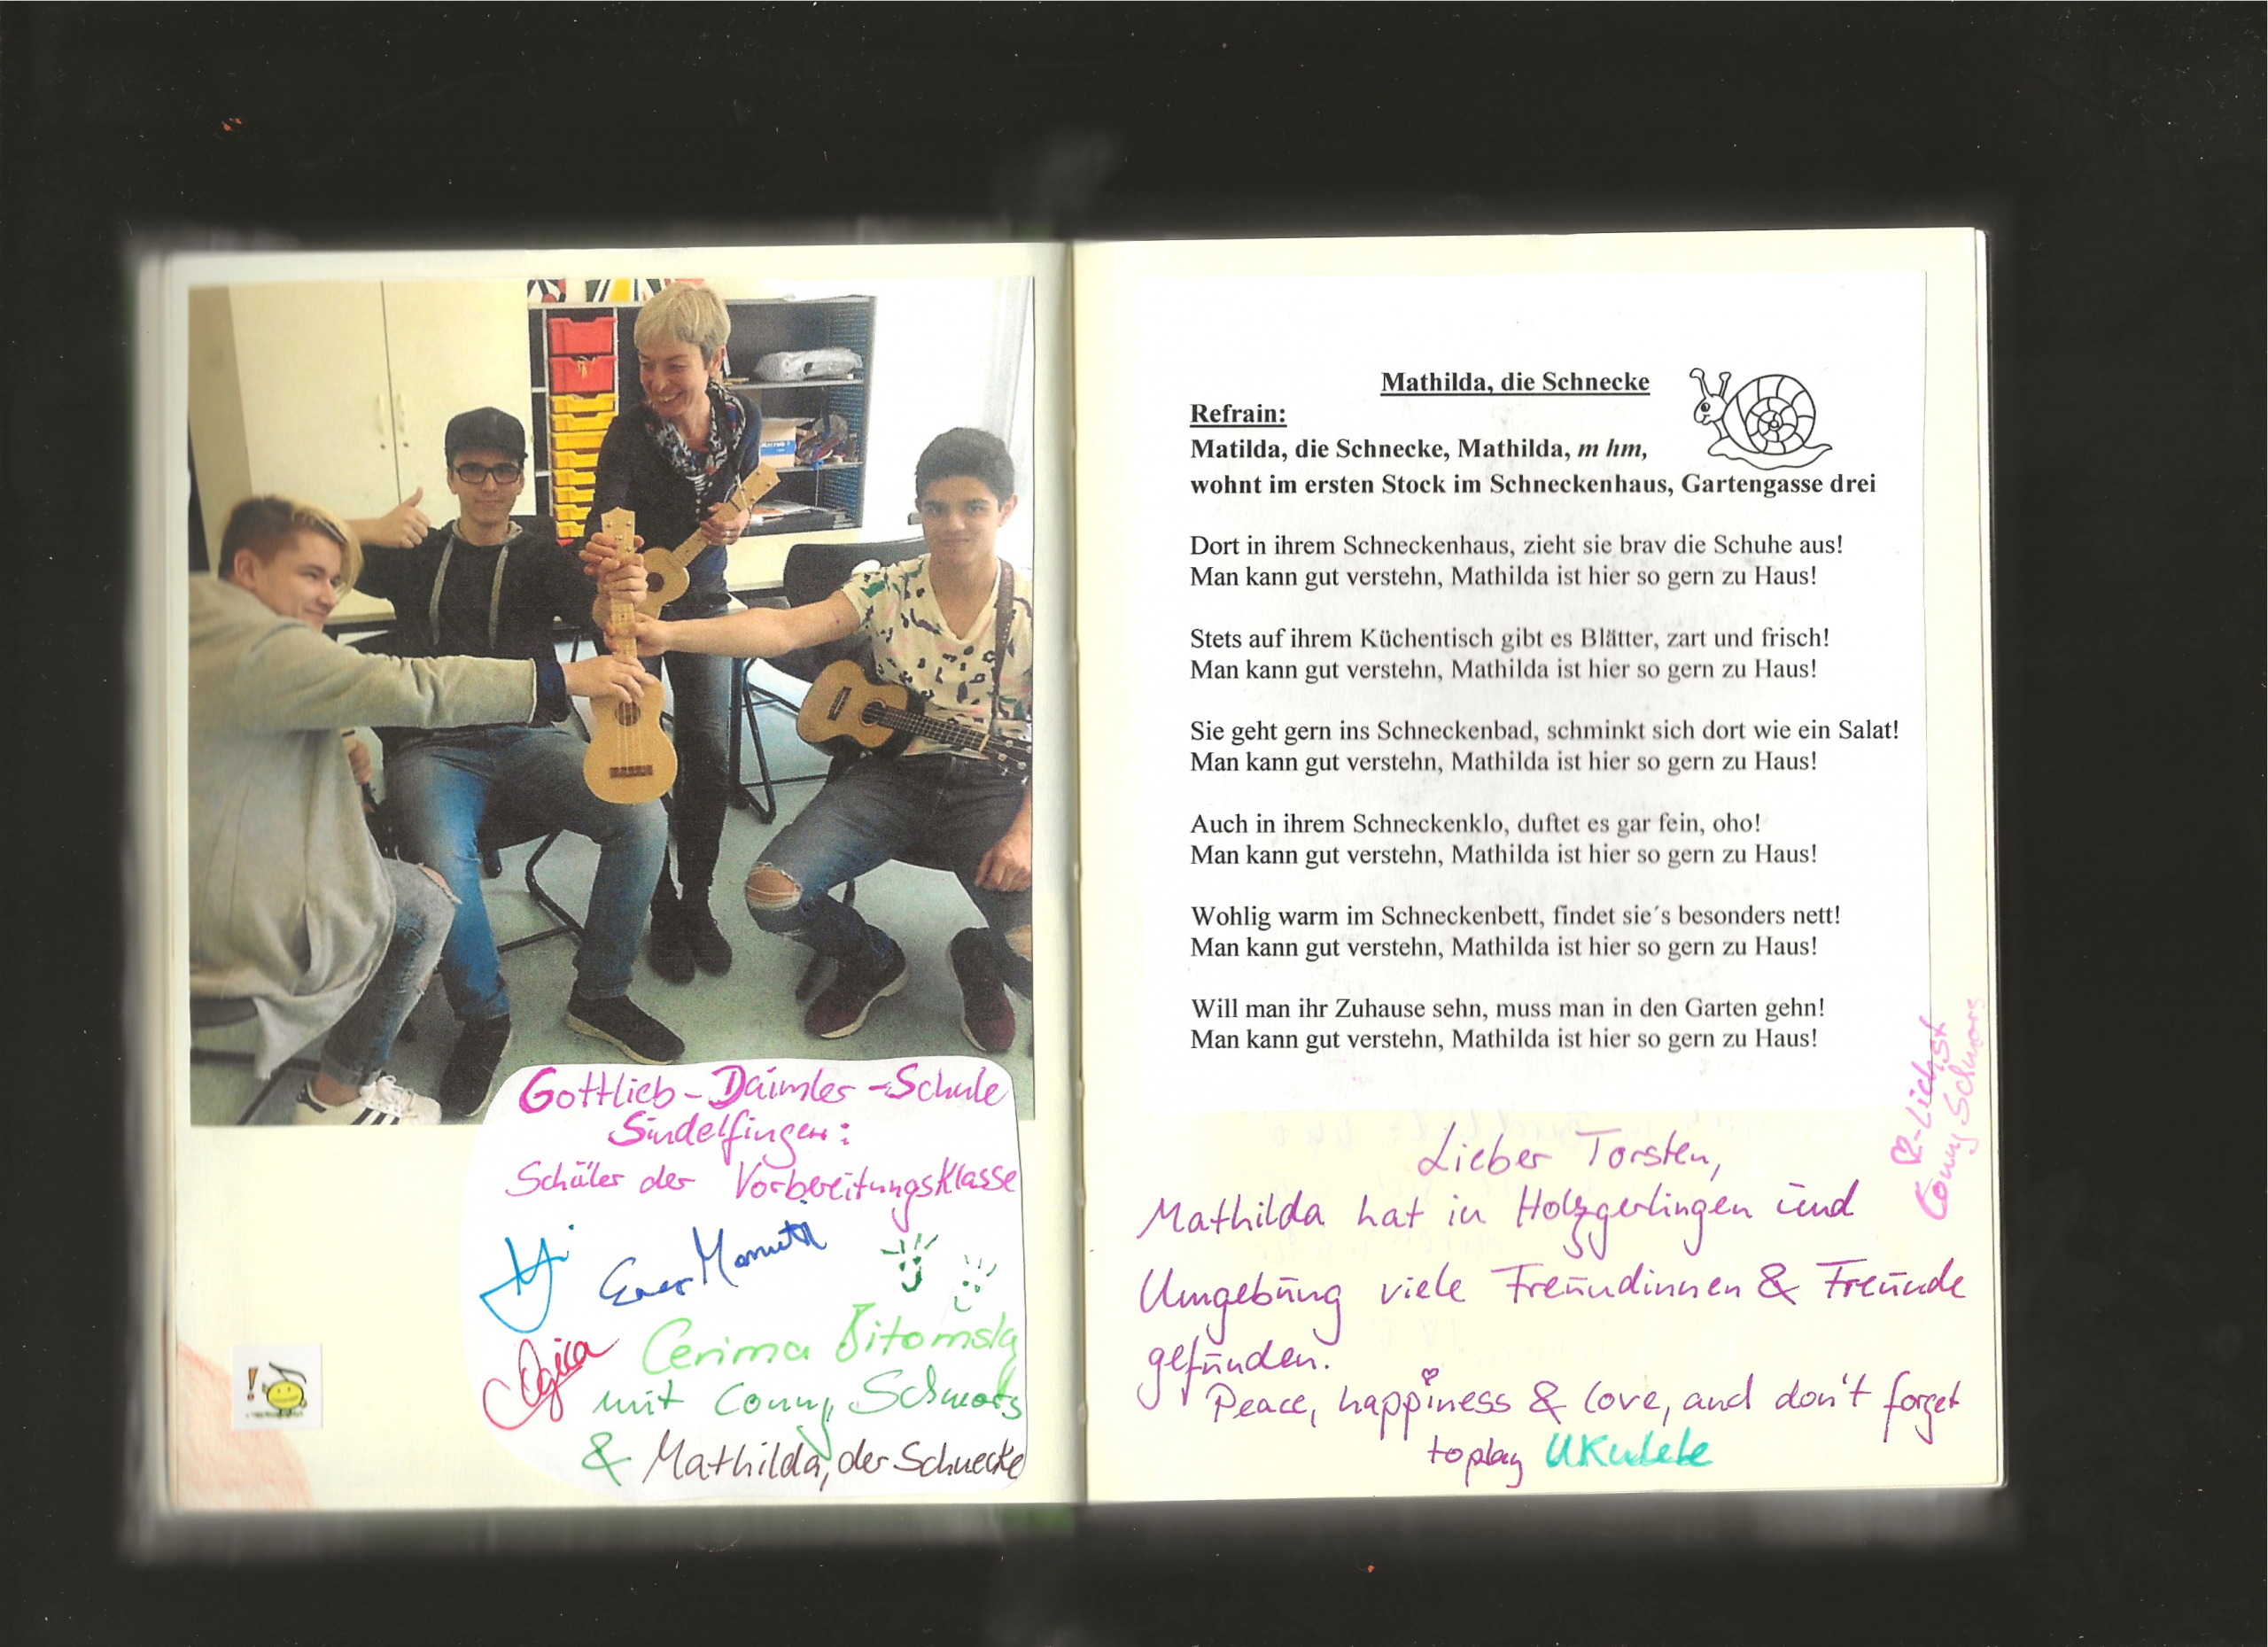 Gottlieb-Daimler-Schule
Sindelfingen:
Schüler der Vorbereitungsklasse
Cerima Bitomsky
mit Conny Schwarz
& Mathilda, der Schnecke
Mathilda, die Schnecke
Refrain:
Matilda, die Schnecke, Mathilda, m hm,
wohnt im ersten Stock im Schneckenhaus, Gartengasse drei
Dort in ihrem Schneckenhaus, zieht sie brav die Schuhe aus!
Man kann gut verstehn, Mathilda ist hier so gern zu Haus!
Stets auf ihrem Küchentisch gibt es Blätter, zart und frisch!
Man kann gut verstehn, Mathilda ist hier so gern zu Haus!
Sie geht gern ins Schneckenbad, schminkt sich dort wie ein Salat!
Man kann gut verstehn, Mathilda ist hier so gern zu Haus!
Auch in ihrem Schneckenklo, duftet es gar fein, oho!
Man kann gut verstehn, Mathilda ist hier so gern zu Haus!
Wohlig warm im Schneckenbett, findet sie´s besonders nett!
Man kann gut verstehn, Mathilda ist hier so gern zu Haus!
Will man ihr Zuhause sehn, muss man in den Garten gehn!
Man kann gut verstehn, Mathilda ist hier so gern zu Haus!
Lieber Torsten,
Mathilda hat in Holzgerlingen und
Umgebung viele Freundinnen & Freunde
gefunden.
Peace, happiness & love, and don't forget
to play Ukulele
♡-lichst
Conny Schwarz